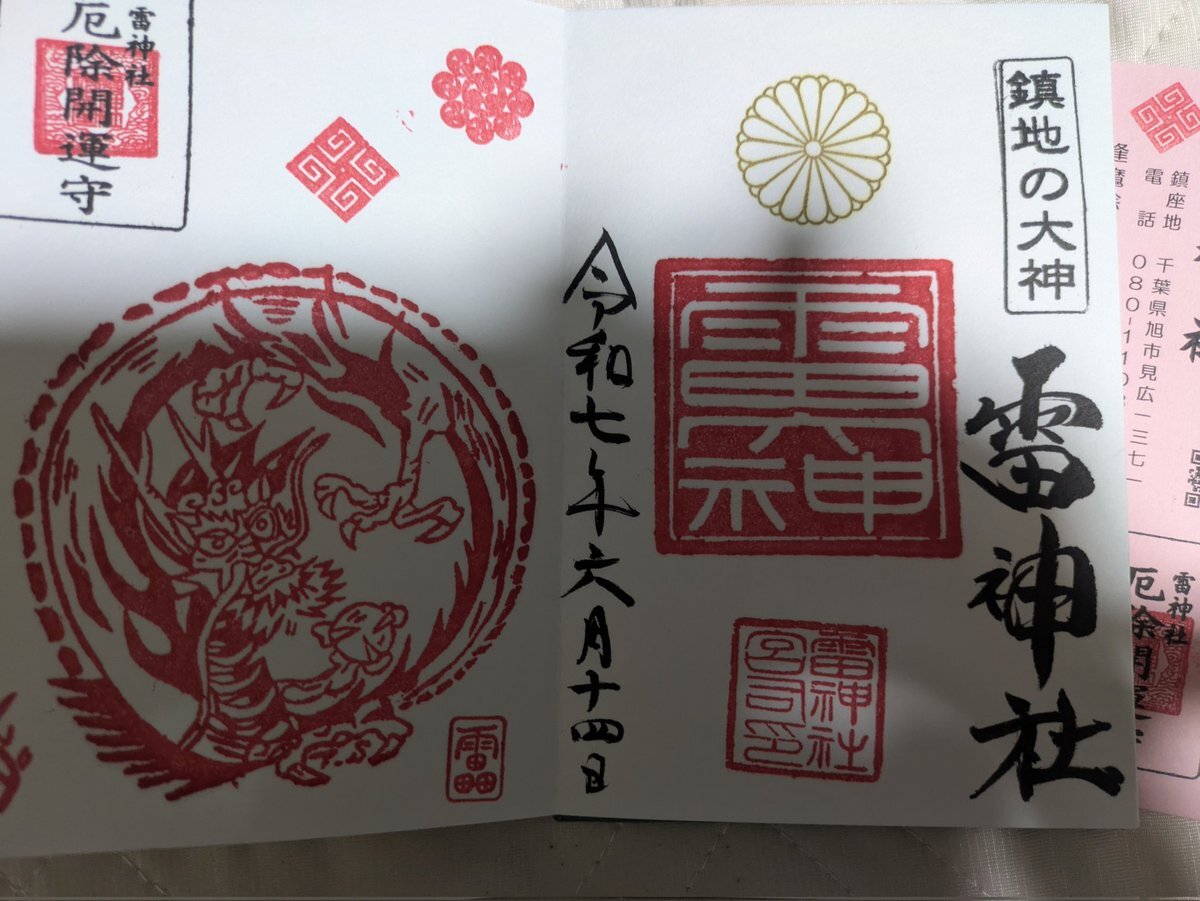 鎮地の大神
雷神社
雷神社
宮司印
令和七年六月十四日
雷神社
厄除開運守
鎮座地 千葉県旭市見広一三七一
電話 080-110
雷神社